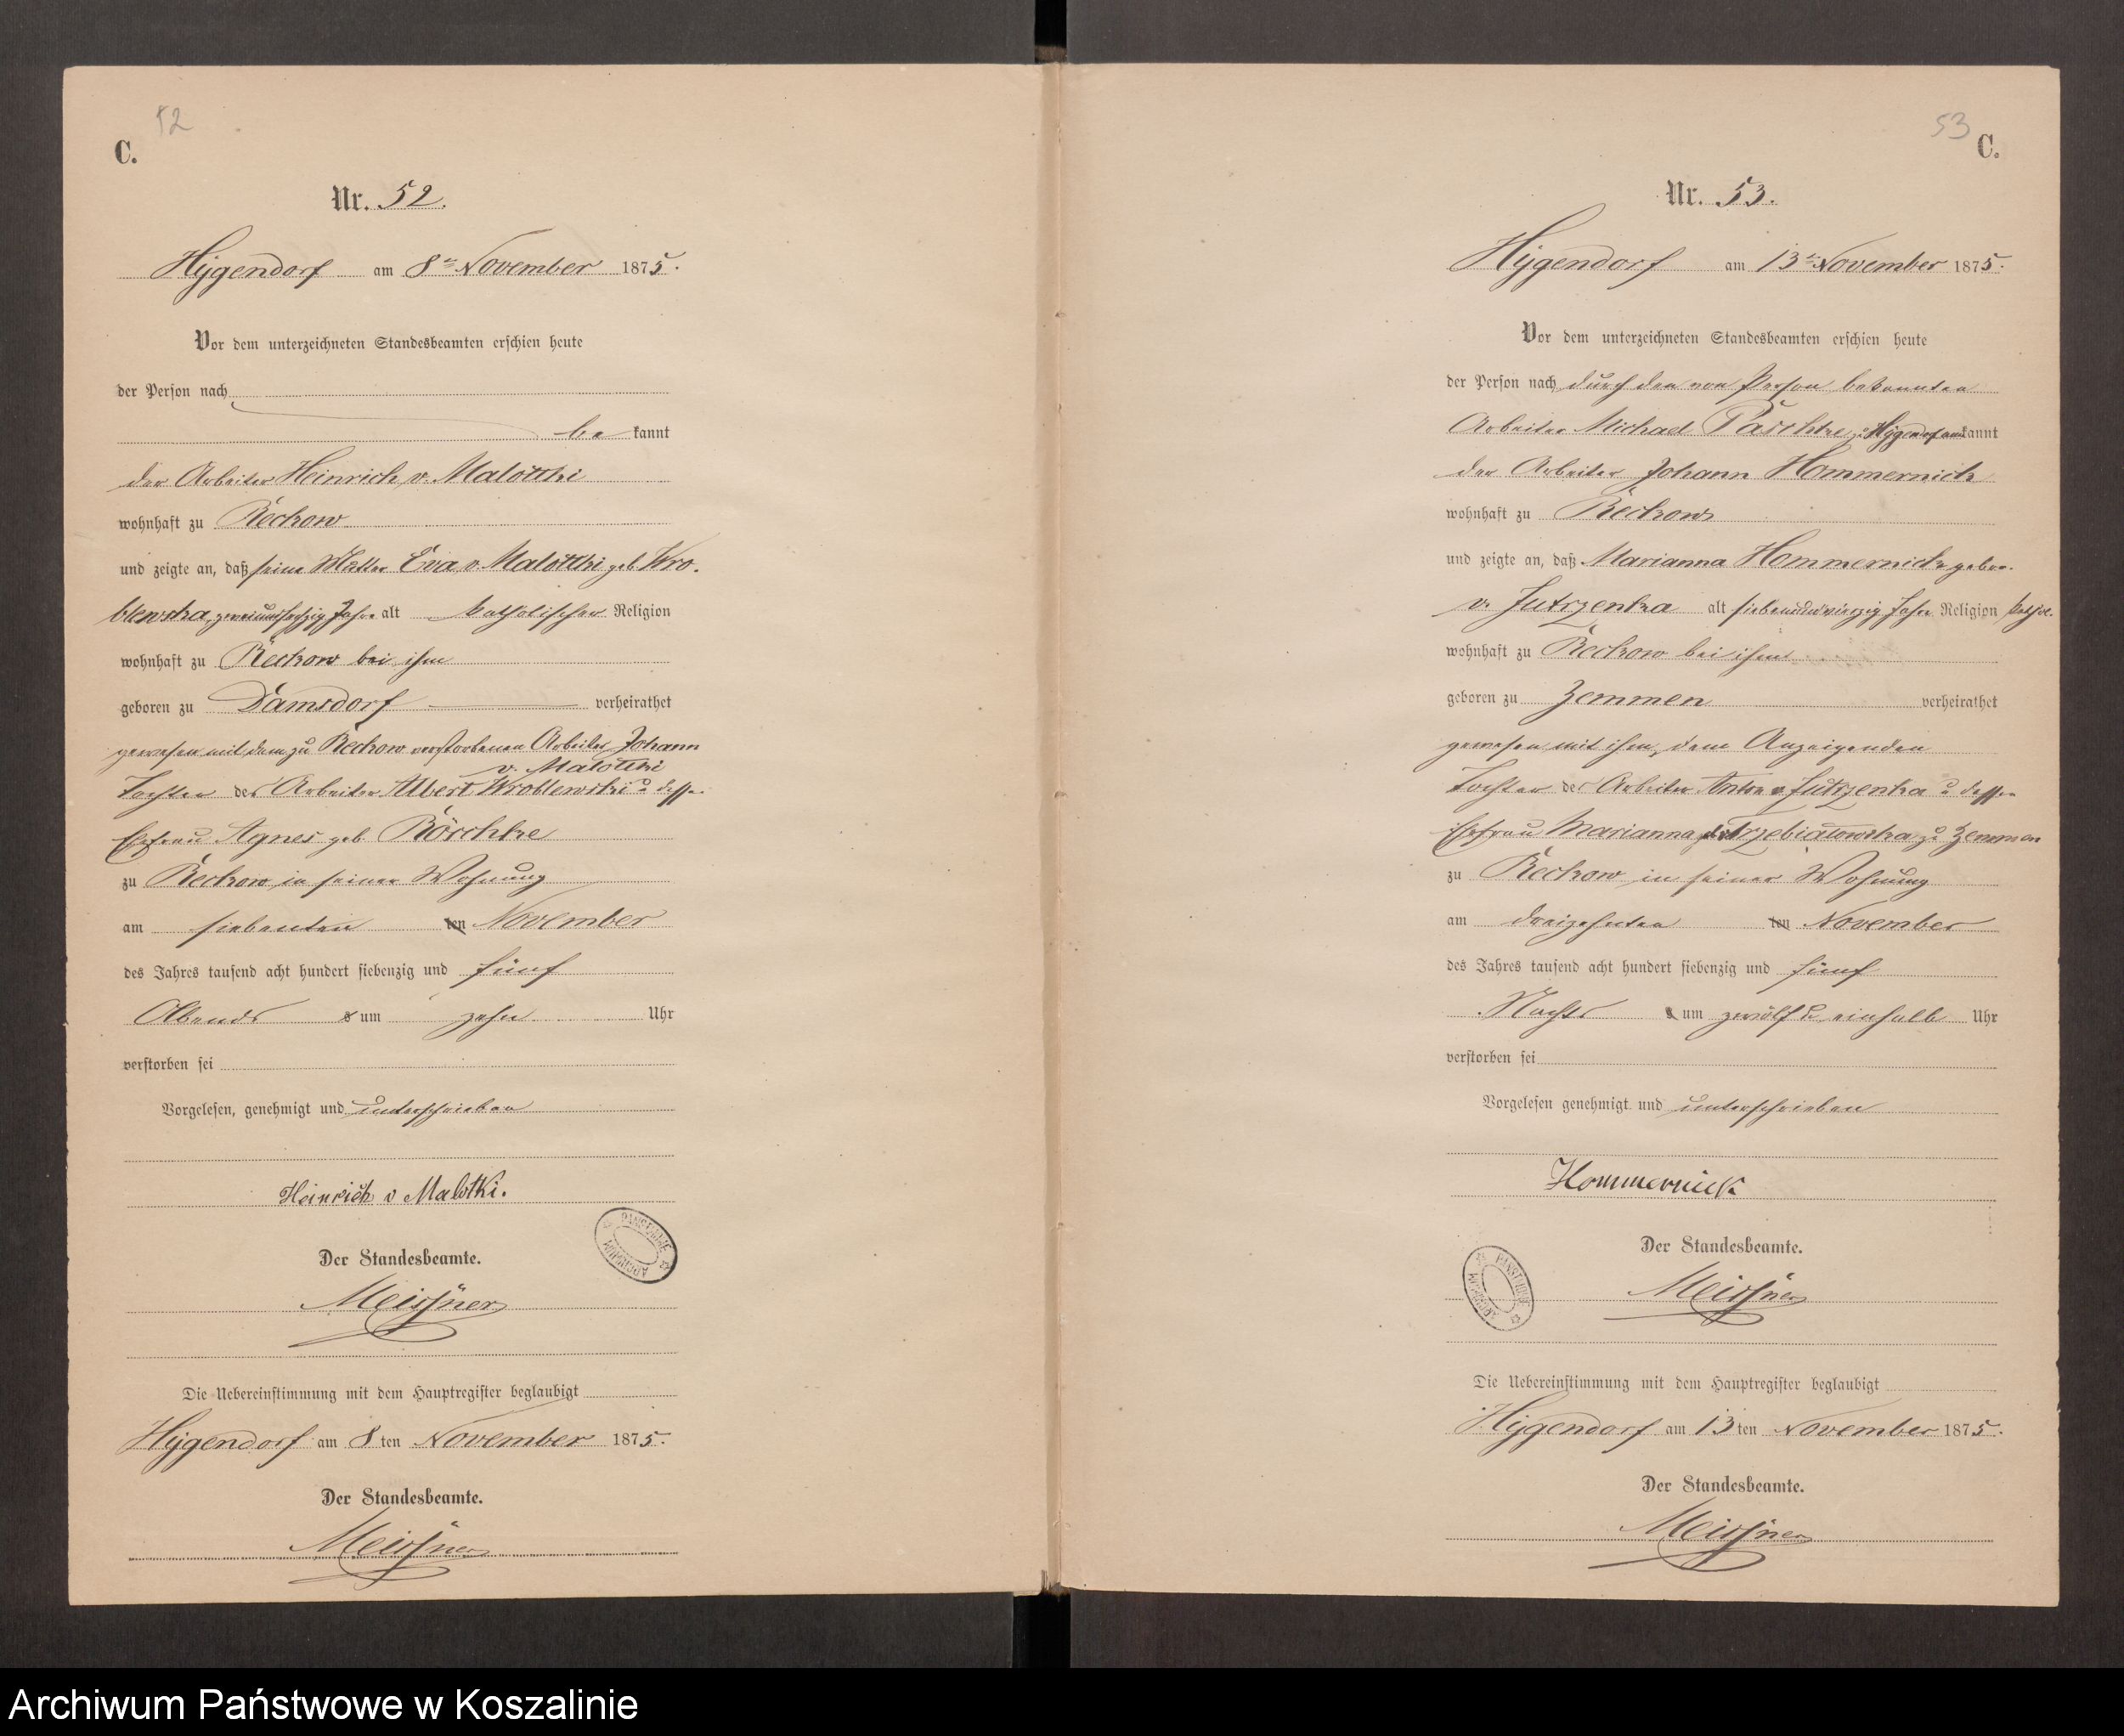 52
C.
Nr. 52.
Hygendorf am 8ten November 1875.
Vor dem unterzeichneten Standesbeamten erschien heute
der Person nach
be kannt
der Arbeiter Heinrich v. Malottki
wohnhaft zu Reckow
und zeigte an, daß seine Mutter Eva v. Malottki geb. Wro-
blewska, zweiundsechzig Jahre alt katholischer Religion
wohnhaft zu Reckow bei ihm
geboren zu Damsdorf verheirathet
gewesen mit dem zu Reckow verstorbenen Arbeiter Johann
v. Malottki
Tochter des Arbeiter Albert Wroblewski u. dessen
Ehefrau Agnes geb. Röschke
zu Reckow in seiner Wohnung
am siebenten ten November
des Jahres tausend acht hundert siebenzig und fünf
Abends s um zehn Uhr
verstorben sei
Vorgelesen, genehmigt und unterschrieben
Heinrich v Malotki.
PANSTWOWE ARCHIWUM
Der Standesbeamte.
Meissner
Die Uebereinstimmung mit dem Hauptregister beglaubigt
Hygendorf am 8 ten November 1875.
Der Standesbeamte.
Meissner
53
C.
Nr. 53.
Hygendorf am 13ten November 1875.
Vor dem unterzeichneten Standesbeamten erschien heute
der Person nach durch den von Person bekannten
Arbeiter Michael Paschke zu Hygendorf anerkannt
der Arbeiter Johann Hommernick
wohnhaft zu Reckow
und zeigte an, daß Marianna Hommernick gebor.
v. Jutrzenka alt siebenundvierzig Jahr Religion kathol.
wohnhaft zu Reckow bei ihm
geboren zu Zemmen verheirathet
gewesen mit ihm, dem Anzeigenden
Tochter des Arbeiter Anton v. Jutrzenka u. dessen
Ehefrau Marianna Trzebiatowska zu Zemmen
zu Reckow in seiner Wohnung
am dreizehnten ten November
des Jahres tausend acht hundert siebenzig und fünf
Nachts s um zwölf u. einhalb Uhr
verstorben sei
Vorgelesen genehmigt und unterschrieben
Hommernick
Der Standesbeamte.
PANSTWOWE ARCHIWUM
Meissner
Die Uebereinstimmung mit dem Hauptregister beglaubigt
Hygendorf am 13 ten November 1875.
Der Standesbeamte.
Meissner
Archiwum Państwowe w Koszalinie